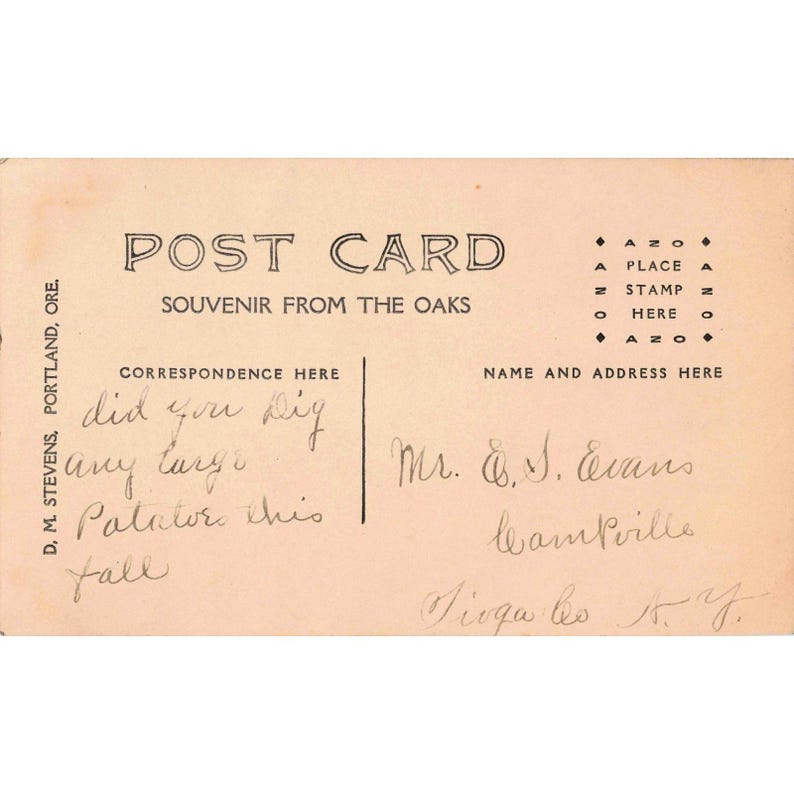 POST CARD
SOUVENIR FROM THE OAKS
AZO
A PLACE A
Z STAMP Z
O HERE O
AZO
D. M. STEVENS, PORTLAND, ORE.
CORRESPONDENCE HERE
did you Dig
any large
Potatoes this
fall
NAME AND ADDRESS HERE
Mr. E. S. Evans
Campville
Tioga Co N. Y.